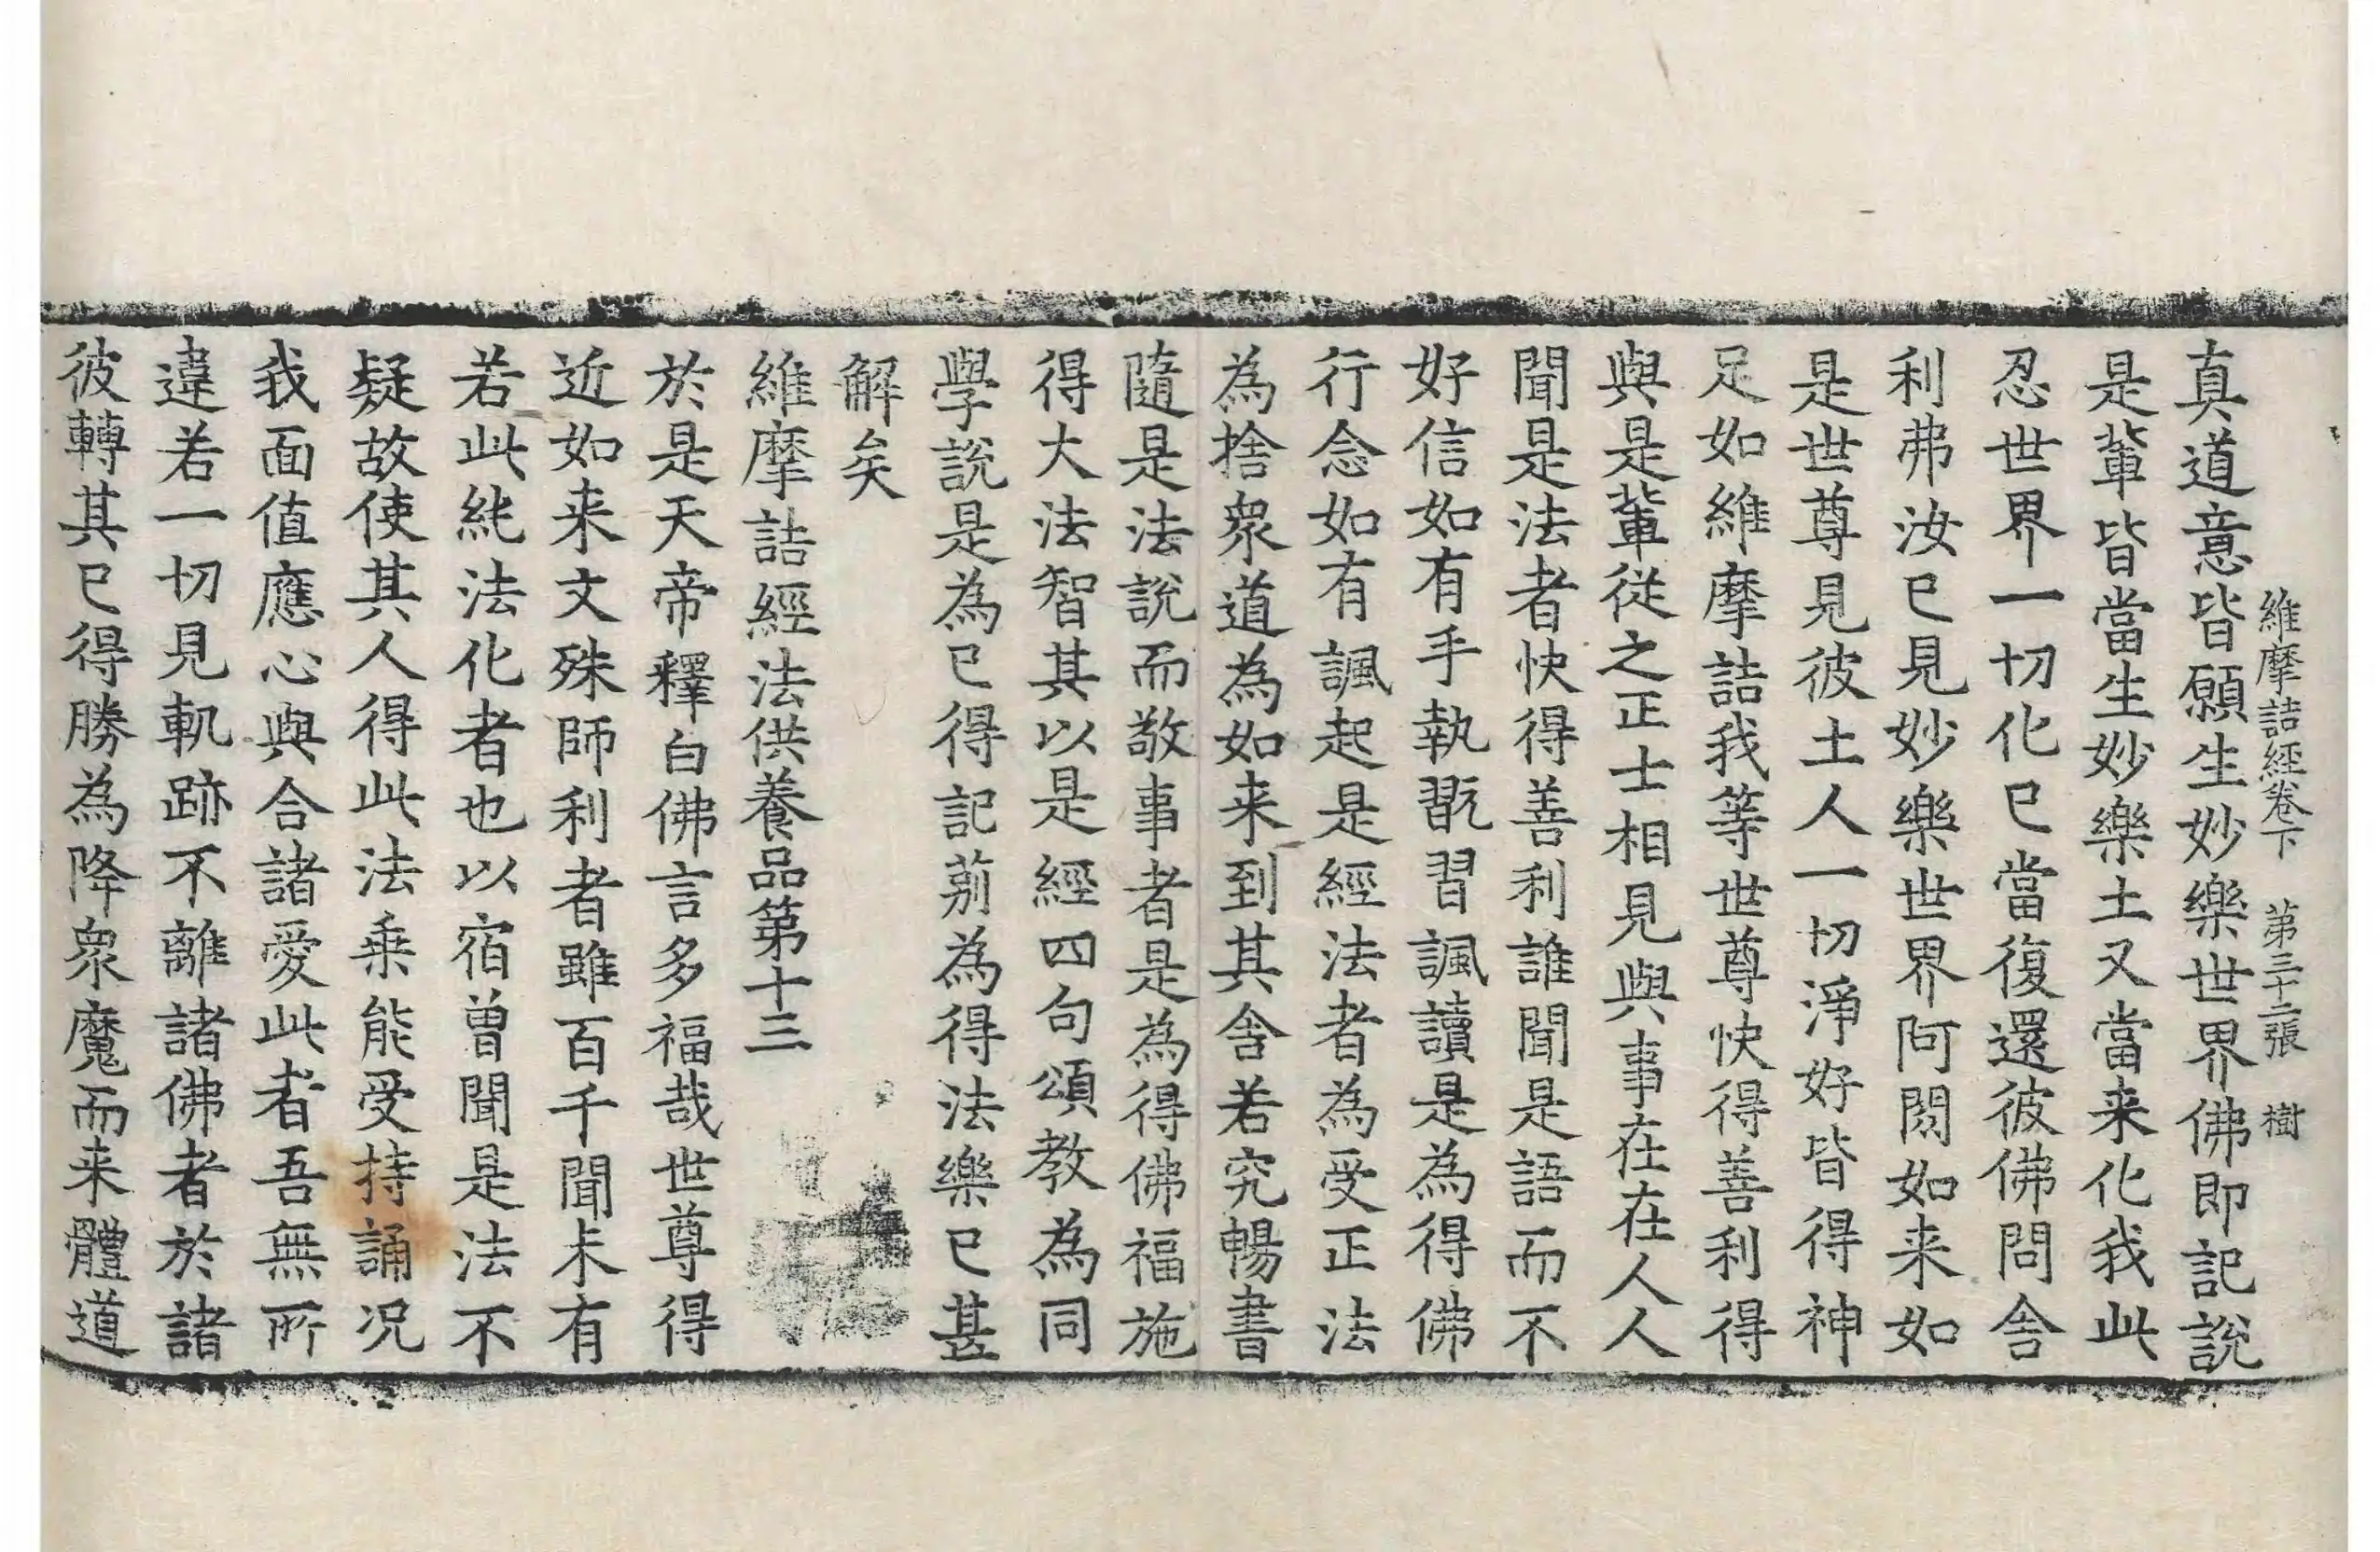 維摩詰經卷下 第三十二張 樹
真道意皆願生妙樂世界佛即記說
是輩皆當生妙樂土又當来化我此
忍世界一切化已當復還彼佛問舎
利弗汝已見妙樂世界阿閦如来如
是世尊見彼土人一切淨好皆得神
足如維摩詰我等世尊快得善利得
與是輩從之正士相見與事在在人人
聞是法者快得善利誰聞是語而不
好信如有手執翫習諷讀是為得佛
行念如有諷起是經法者為受正法
為捨衆道為如来到其舎若究暢書
隨是法說而敬事者是為得佛福施
得大法智其以是經四句頌教為同
學說是為已得記莂為得法樂已甚
解矣
維摩詰經法供養品第十三
於是天帝釋白佛言多福哉世尊得
近如来文殊師利者雖百千聞未有
若此純法化者也以宿曾聞是法不
疑故使其人得此法乗能受持誦况
我面值應心與合諸愛此者吾無所
違若一切見軌跡不離諸佛者於諸
彼轉其已得勝為降衆魔而来體道